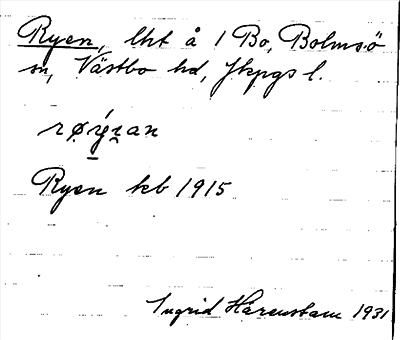 Ryen, lht å 1 Bo, Bolmsö
sn, Västbo hd, Jkpgs l.
røý̱ran
Ryen kb 1915
Ingrid Hårenstam 1931